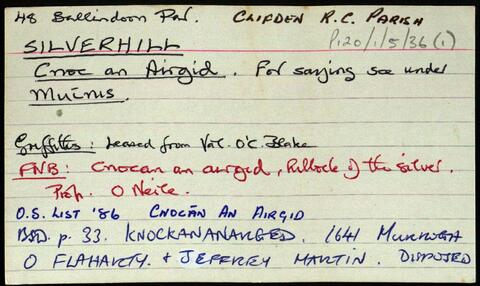 48 Ballindoon Par. CLIFDEN R.C. PARISH
P120/1/5/36 (1)
SILVERHILL
Cnoc an Airgid. For saying see under
Muínis.
Griffiths: Leased from Val. O'C. Blake
FNB: Cnocan an airgid, hillock of the silver.
Prop. O Neile.
O.S. LIST '86 CNOCÁN AN AIRGID
BSD. p. 33. KNOCKANANARGED. 1641 MURROGH
O FLAHARTY. & JEFFREY MARTIN. DISPOSED